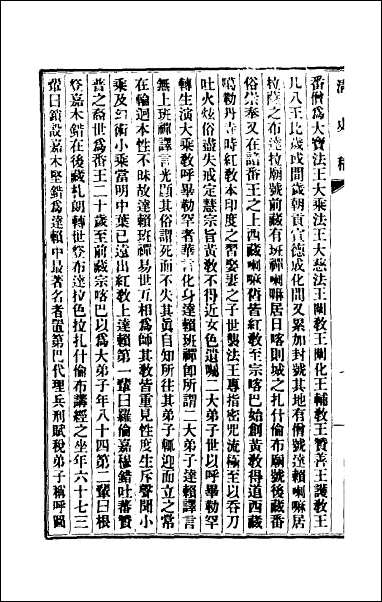 清史稿
番僧爲大寶法王大乘法王大慈法王闡教王闡化王輔教王贊善王護教王
凡八王比歲或間歲朝貢宣德成化間又累加封號其地有僧號達賴喇嘛居
拉薩之布達拉廟號前藏有班禪喇嘛居日喀則城之札什倫布廟號後藏番
俗崇奉又在諸番王之上西藏喇嘛舊皆紅教至宗喀巴始創黃教得道西藏
噶勒丹寺時紅教本印度之習娶妻生子世襲法王專指密咒流極至以吞刀
吐火炫俗盡失戒定慧宗旨黃教不得近女色遺囑二大弟子世以呼畢勒罕
轉生演大乘教呼畢勒罕者華言化身達賴班禪即所謂二大弟子達賴譯言
無上班禪譯言光顯其俗謂死而不失其眞自知所往其弟子輒迎而立之常
在輪迴本性不昧故達賴班禪易世互相爲師其教皆重見性度生斥聲聞小
乘及幻術小乘當明中葉已遠出紅教上達賴第一輩曰羅倫嘉穆錯吐蕃贊
普之裔世爲番王二十歲至前藏宗喀巴以爲大弟子年八十四第二輩曰根
登嘉木錯在後藏札朗轉世登布達拉色拉札什倫布講經之坐年六十七三
輩曰鎖設嘉木堅錯爲達賴中最著名者置第巴代理兵刑賦稅弟子稱呼圖